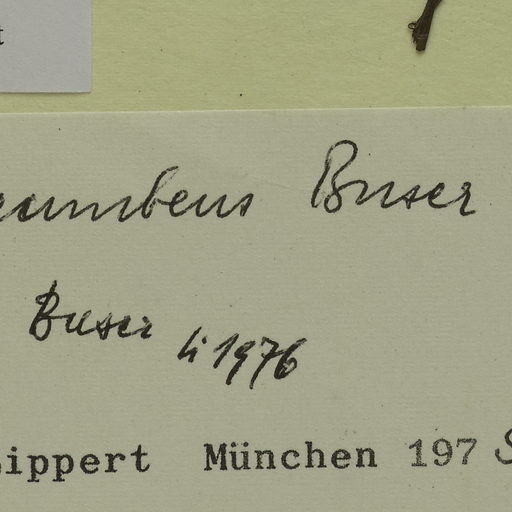 t
cumbens Buser
Buser li 1976
ippert München 197